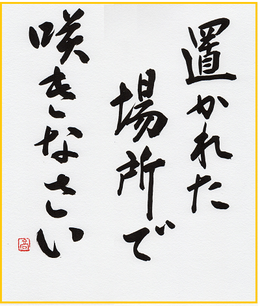 置かれた
場所で
咲きなさい